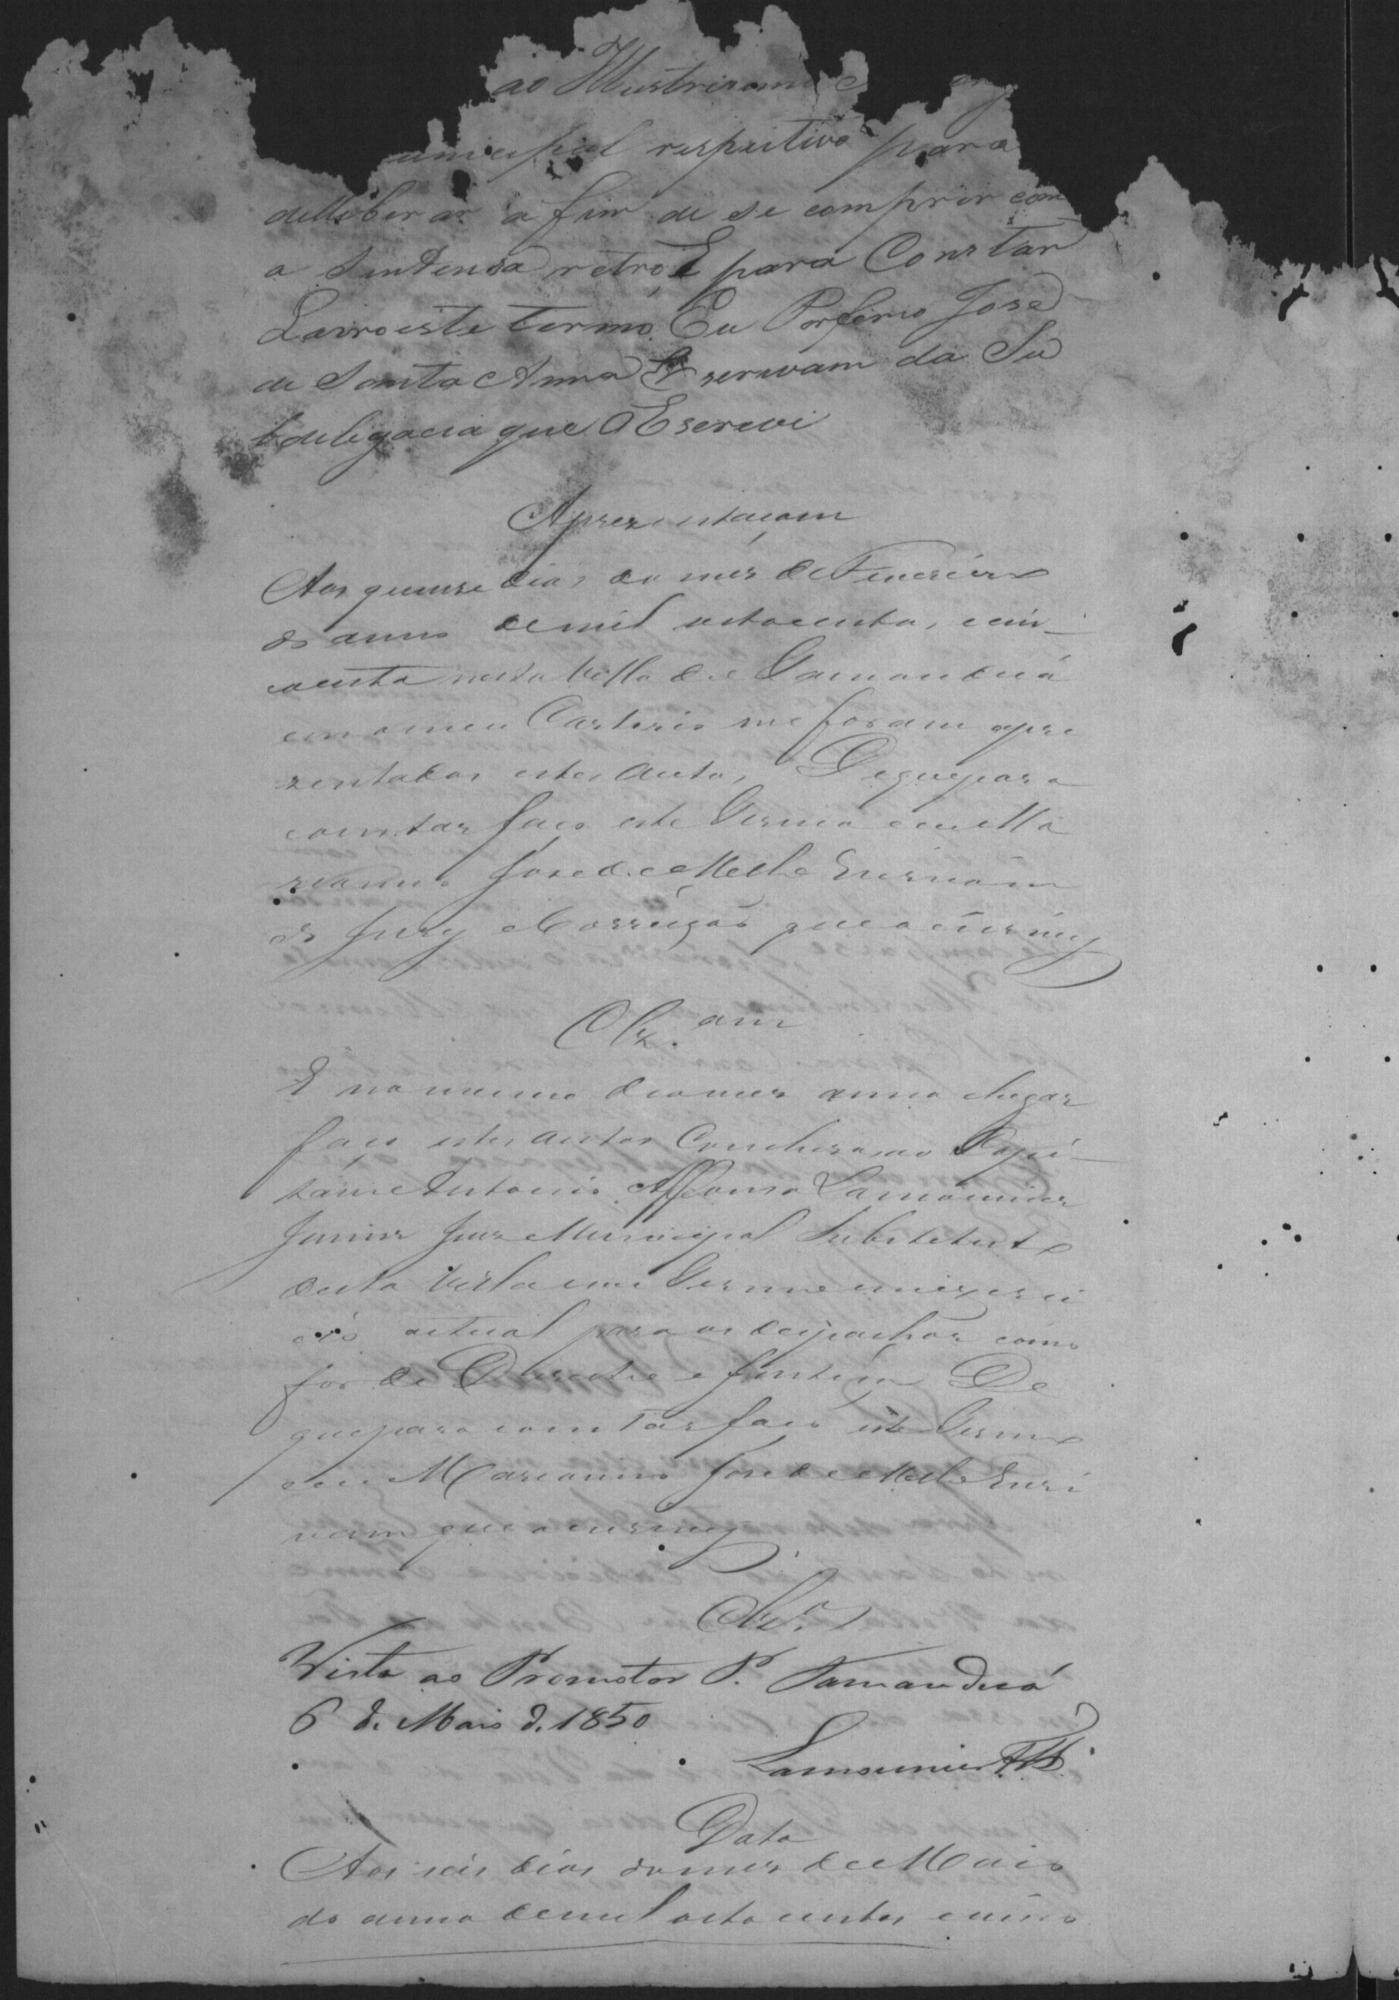 ao Illustrissimo
unicipal respectivo para
delliberar a fim de se comprir com
a Sentensa retro E para Constar
Lavro este termo Eu Porferio José
de Santa Anna Escrivam da Su
bdeligacia que o Escrevi
Aprezentacam
Aos quinse dias do mes de Fevereiro
do anno de mil oitocentos, cin-
coenta nesta Villa de Tamanduá
em o meu Cartorio me foram apre
zentados estes autos, De que para
constar faço este Termo eu Ma
rianno José de Mello Escrivam
do Jury e Correições que o escrevy
Clz.am
E no mesmo dia mes anno e lugar
faço estes autos Conclusos ao Capi-
tam Antonio Affonso Lamounier
Junior Juiz Municipal Substituto
desta Villa e seu Termo em exerci
cio actual para os despachar como
for de Direito e Justiça De
que para constar faço este Termo
eu Marianno José de Mello Escri
vam que o escrevy
Clz.o
Vista ao Promotor P. Tamanduá
6 de Maio d. 1850
Lamounier
Data
Aos seis dias do mes de Maio
do anno de mil oito centos e cinco